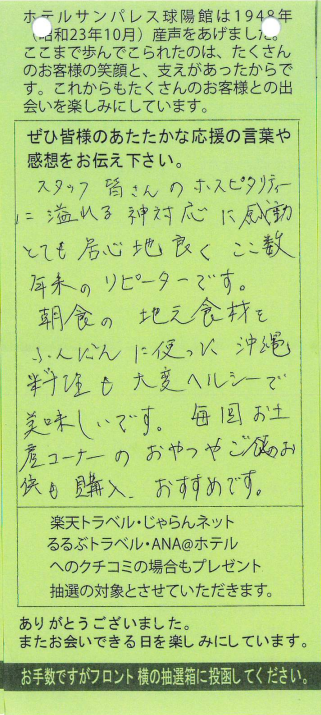 ホテルサンパレス球陽館は1948年
（昭和23年10月）産声をあげました。
ここまで歩んでこられたのは、たくさん
のお客様の笑顔と、支えがあったからで
す。これからもたくさんのお客様との出
会いを楽しみにしています。
ぜひ皆様のあたたかな応援の言葉や
感想をお伝え下さい。
スタッフ皆さんのホスピタリティー
に溢れる神対応に感動
とても居心地良くここ数
年来のリピーターです。
朝食の地元食材を
ふんだんに使った沖縄
料理も大変ヘルシーで
美味しいです。毎回お土
産コーナーのおやつやご飯のお
供も購入、おすすめです。
楽天トラベル・じゃらんネット
るるぶトラベル・ANA@ホテル
へのクチコミの場合もプレゼント
抽選の対象とさせていただきます。
ありがとうございました。
またお会いできる日を楽しみにしています。
お手数ですがフロント横の抽選箱に投函してください。